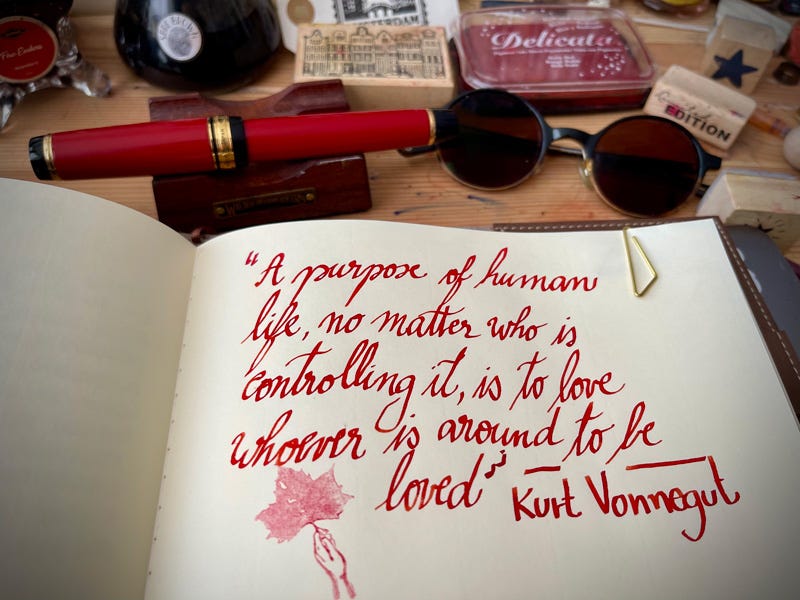 Fine Écoline
TERDAM
Delicata
Limited
EDITION
"A purpose of human
life, no matter who is
controlling it, is to love
whoever is around to be
loved"
Kurt Vonnegut